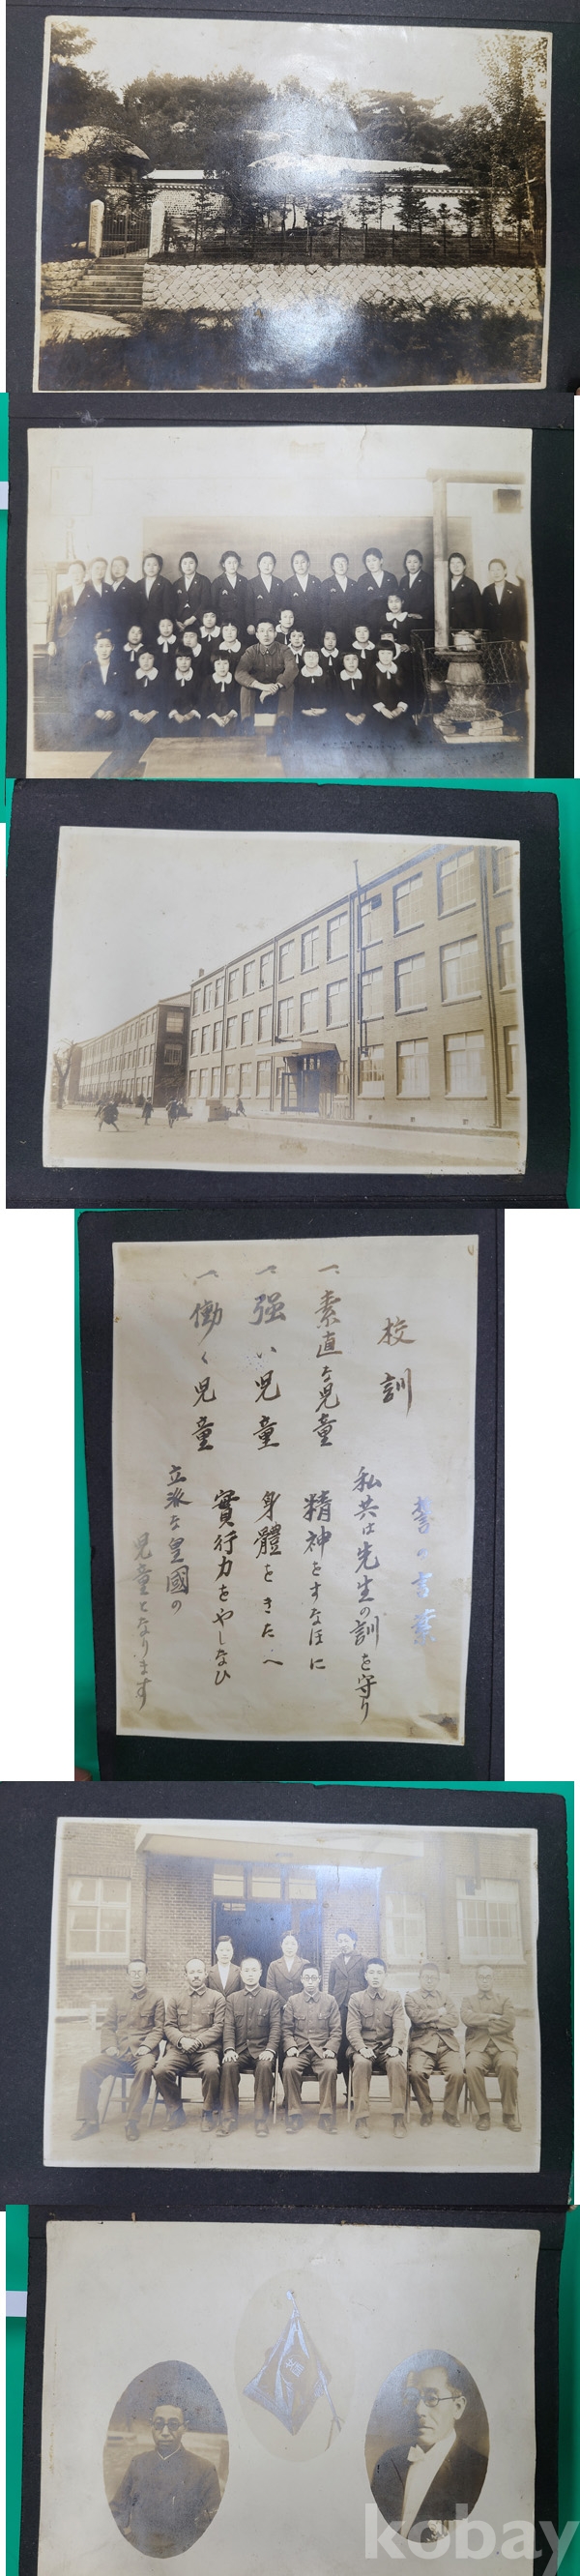 校訓
一 素直な児童
一 強い児童
一 働く児童
誓の言葉
私共は先生の訓を守り
精神をすなほに
身體をきたへ
實行力をやしなひ
立派な皇國の
児童となります
kobay